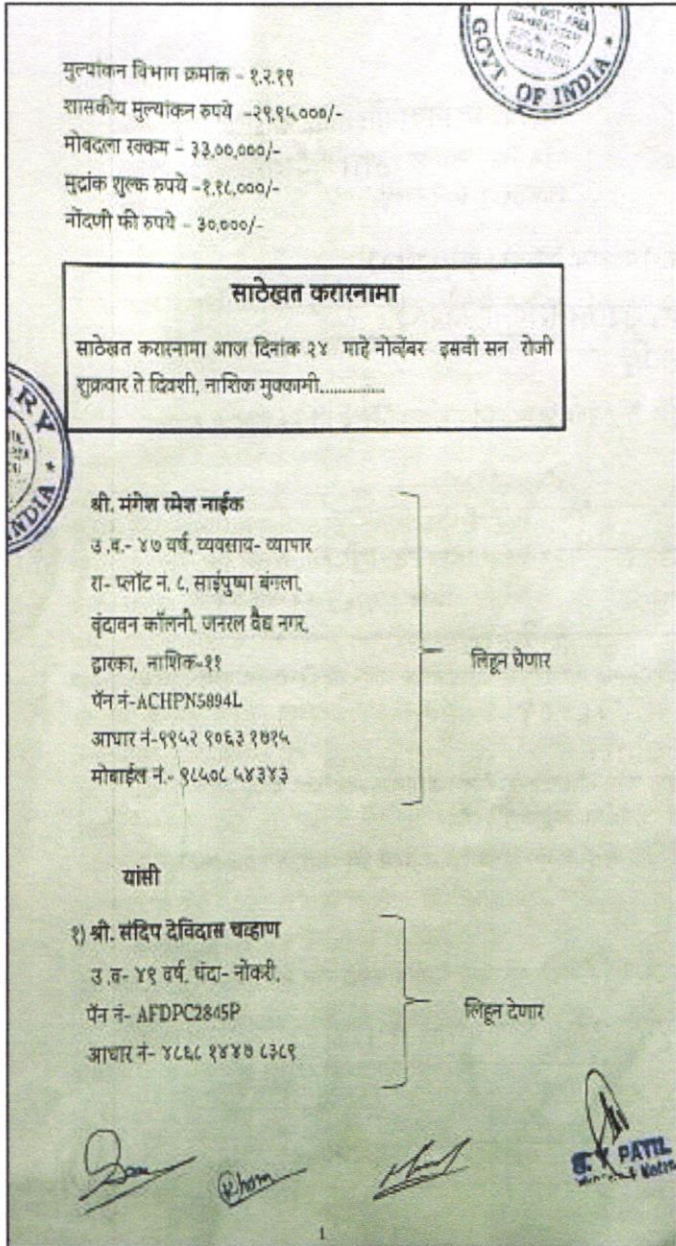 GOVT. OF INDIA *
मुल्यांकन विभाग क्रमांक - १.२.१९
शासकीय मुल्यांकन रुपये -२९,९५,०००/-
मोबदला रक्कम - ३३,००,०००/-
मुद्रांक शुल्क रुपये -१,१८,०००/-
नोंदणी फी रुपये - ३०,०००/-
साठेखत करारनामा
साठेखत करारनामा आज दिनांक २४ माहे नोव्हेंबर इसवी सन रोजी
शुक्रवार ते दिवशी, नाशिक मुक्कामी...............
INDIA *
श्री. मंगेश रमेश नाईक
उ .व.- ४७ वर्ष, व्यवसाय- व्यापार
रा- प्लॉट नं. ८, साईपुष्पा बंगला,
वृंदावन कॉलनी, जनरल वैद्य नगर,
द्वारका, नाशिक-११
पॅन नं-ACHPN5894L
आधार नं-९९५२ ९०६३ १७१५
मोबाईल नं.- ९८५०८ ५४३४३
लिहून घेणार
यांसी
१) श्री. संदिप देविदास चव्हाण
उ .व- ४९ वर्ष, धंदा- नोकरी,
पॅन नं- AFDPC2845P
आधार नं- ४८६८ १४४७ ८३८९
लिहून देणार
PATIL
1